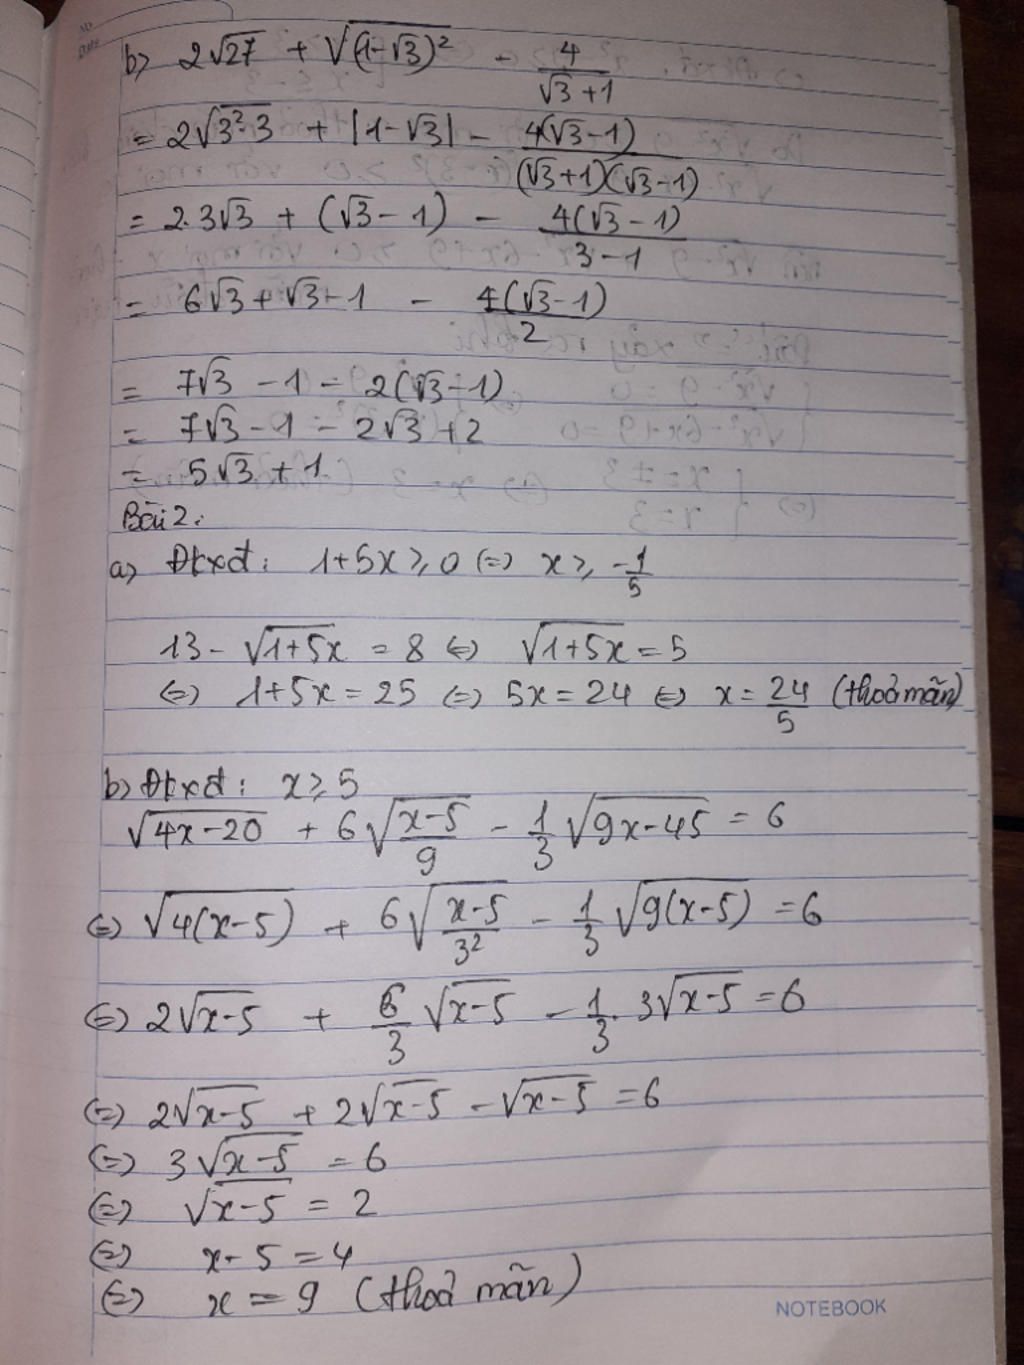 No
Date
b) 2√27 + √(1-√3)² - 4/(√3+1)
= 2√(3².3) + |1-√3| - 4(√3-1)/((√3+1)(√3-1))
= 2.3√3 + (√3-1) - 4(√3-1)/(3-1)
= 6√3 + √3 - 1 - 4(√3-1)/2
= 7√3 - 1 - 2(√3-1)
= 7√3 - 1 - 2√3 + 2
= 5√3 + 1
Bài 2:
a) Đkxđ: 1+5x ≥ 0 (=) x ≥ -1/5
13 - √(1+5x) = 8 (=) √(1+5x) = 5
(=) 1+5x = 25 (=) 5x = 24 (=) x = 24/5 (thoả mãn)
b) Đkxđ: x ≥ 5
√(4x-20) + 6√((x-5)/9) - 1/3 √(9x-45) = 6
(=) √(4(x-5)) + 6√((x-5)/3²) - 1/3 √(9(x-5)) = 6
(=) 2√(x-5) + 6/3 √(x-5) - 1/3 . 3√(x-5) = 6
(=) 2√(x-5) + 2√(x-5) - √(x-5) = 6
(=) 3√(x-5) = 6
(=) √(x-5) = 2
(=) x-5 = 4
(=) x = 9 (thoả mãn)
NOTEBOOK